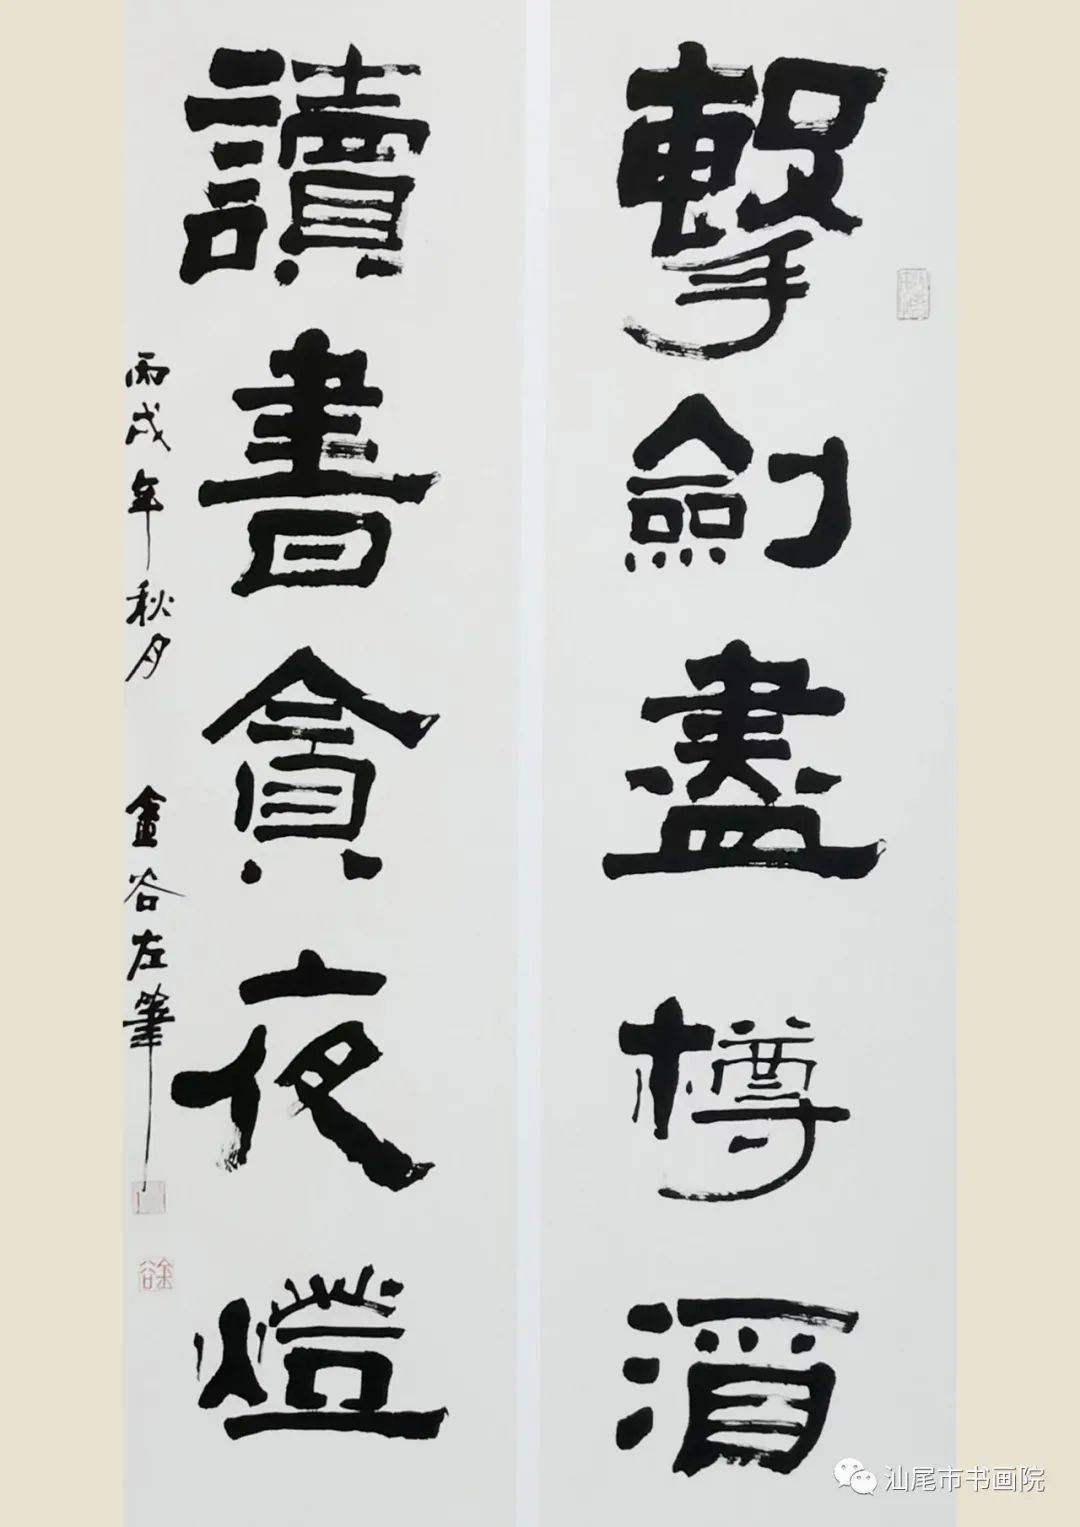 擊劍盡樽酒
讀書貪夜燈
丙戌年秋月 金谷左筆
金谷
汕尾市书画院